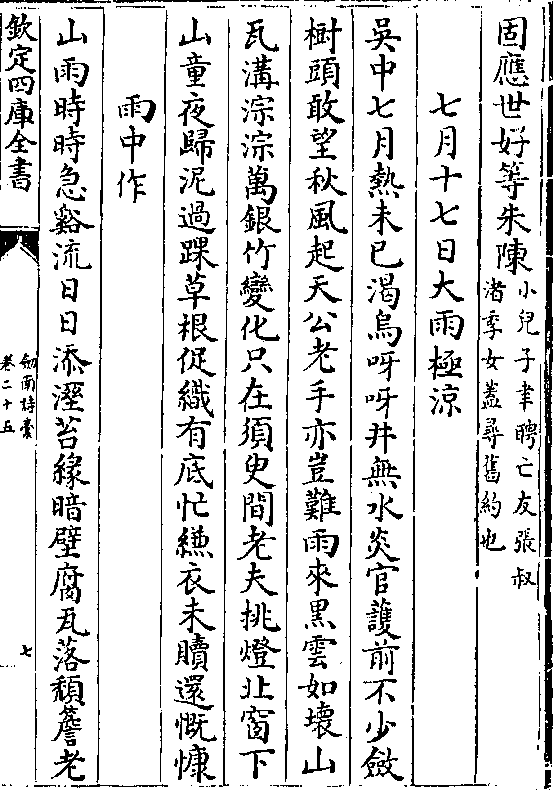 固應世好等朱陳小兒子聿聘亡友張叔
渚季女葢尋舊約也
七月十七日大雨極涼
吳中七月熱未已渴烏呀呀井無水炎官護前不少斂
樹頭敢望秋風起天公老手亦豈難雨來黒雲如壊山
瓦溝淙淙萬銀竹變化只在須臾間老夫挑燈北窗下
山童夜歸泥過踝草根促織有底忙縑衣未贖還慨慷
雨中作
山雨時時急谿流日日添溼苔緣暗壁腐瓦落頹簷老
欽定四庫全書
劒南詩藁
卷二十五
七